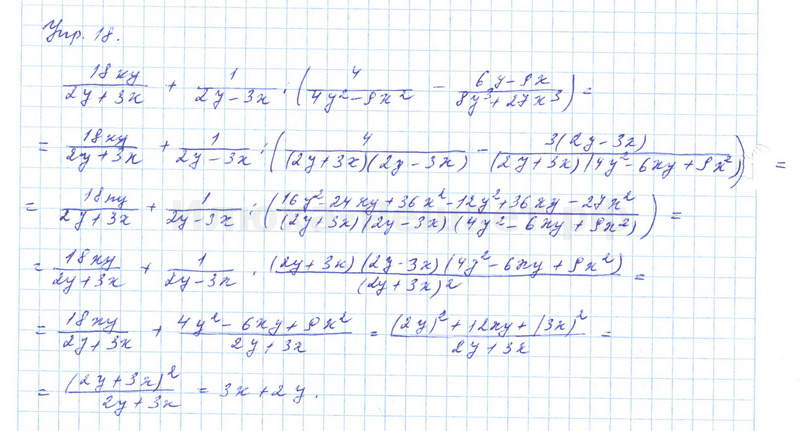 Упр. 18.
18xy/(2y+3x) + 1/(2y-3x) : (4/(4y²-9x²) - (6y-9x)/(8y³+27x³)) =
= 18xy/(2y+3x) + 1/(2y-3x) : (4/((2y+3x)(2y-3x)) - 3(2y-3x)/((2y+3x)(4y²-6xy+9x²))) =
= 18xy/(2y+3x) + 1/(2y-3x) : ((16y²-24xy+36x²-12y²+36xy-27x²)/((2y+3x)(2y-3x)(4y²-6xy+9x²))) =
= 18xy/(2y+3x) + 1/(2y-3x) · ((2y+3x)(2y-3x)(4y²-6xy+9x²))/(2y+3x)² =
= 18xy/(2y+3x) + (4y²-6xy+9x²)/(2y+3x) = ((2y)²+12xy+(3x)²)/(2y+3x) =
= (2y+3x)²/(2y+3x) = 3x+2y.